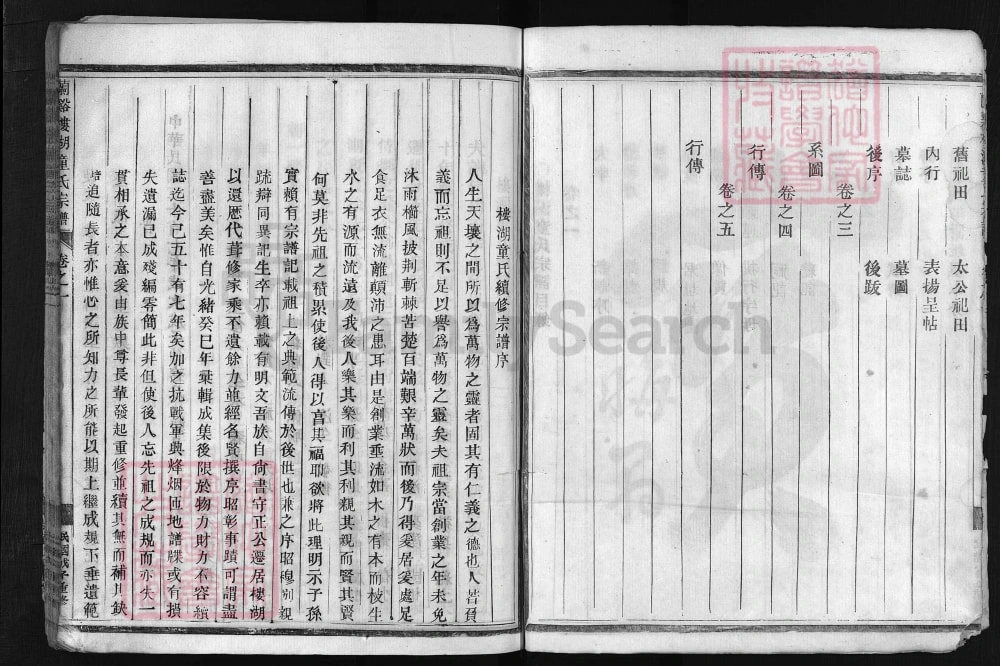 舊祀田　太公祀田
內行　表揚呈帖
墓誌　墓圖
後序　後跋
卷之三
系圖
卷之四
行傳
卷之五
行傳
樓湖童氏續修宗譜序
人生天壤之間所以爲萬物之靈者固其有仁義之德也人皆負
義而忘祖則不足以譽爲萬物之靈矣夫祖宗當創業之年未免
沐雨櫛風披荆斬棘苦楚百端艱辛萬狀而後乃得爰居爰處足
食足衣無流離顛沛之患耳由是創業垂流如木之有本而枝生
水之有源而流遠及我後人樂其樂而利其利親其親而賢其賢
何莫非先祖之積累使後人得以富其福耶欲將此理明示子孫
實賴有宗譜記載祖上之典範流傳於後世也兼之序昭穆別親
疏辯同異記生卒亦賴載有明文吾族自尚書守正公遷居樓湖
以還歷代葺修家乘不遺餘力並經名賢撰序昭彰事蹟可謂盡
善盡美矣惟自光緖癸巳年乘輯成集後限於物力財力不容續
誌迄今已五十有七年矣加之抗戰軍興烽烟匝地譜牒或有損
失遺漏已成殘編零簡此非但使後人忘先祖之成規而亦失一
貫相承之本意爰由族中尊長輩發起重修並續其無而補其缺
培追隨長者亦惟心之所知力之所能以期上繼成規下垂遺範
蘭谿樓湖童氏宗譜　卷之一
民國戊子重修